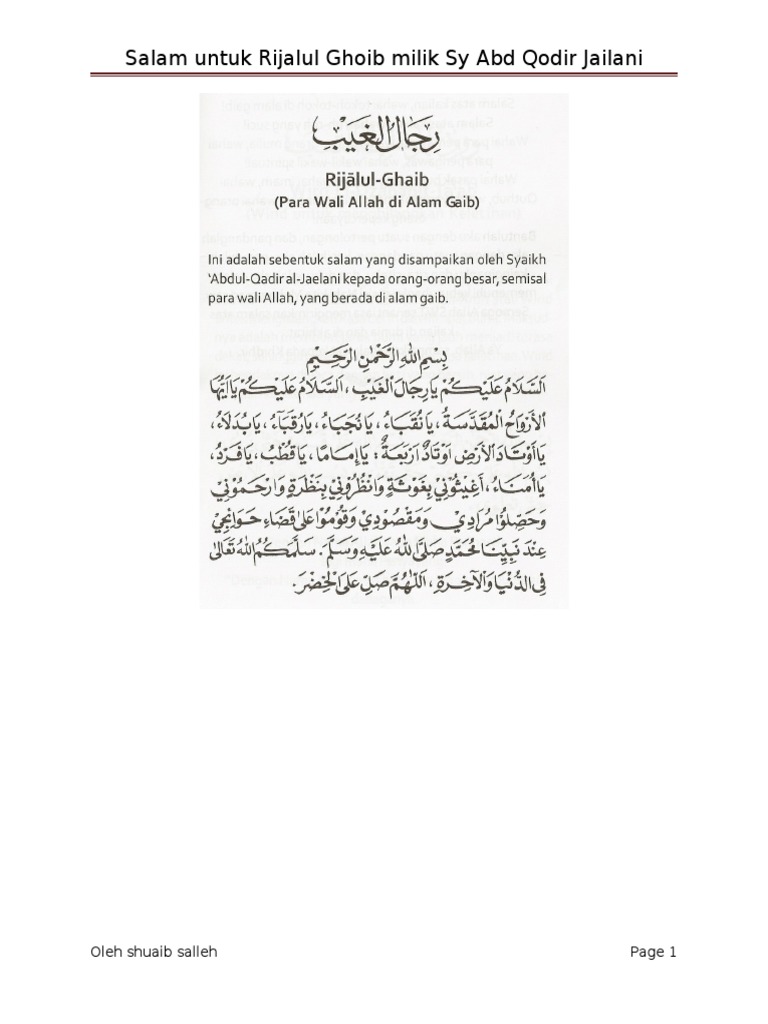 Salam untuk Rijalul Ghoib milik Sy Abd Qodir Jailani
رِجَالُ الْغَيْبِ
Rijālul-Ghaib
(Para Wali Allah di Alam Gaib)
Ini adalah sebentuk salam yang disampaikan oleh Syaikh
‘Abdul-Qadir al-Jaelani kepada orang-orang besar, semisal
para wali Allah, yang berada di alam gaib.
بِسْمِ اللهِ الرَّحْمٰنِ الرَّحِيْمِ
اَلسَّلَامُ عَلَيْكُمْ يَارِجَالَ الْغَيْبِ، اَلسَّلَامُ عَلَيْكُمْ يَااَيُّهَا
الْأَرْوَاحُ الْمُقَدَّسَةُ، يَانُقَبَاءُ، يَانُجَبَاءُ، يَارُقَبَآءُ، يَابُدَلَاءُ،
يَاأَوْتَادَ الْأَرْضِ اَوْتَادٌ اَرْبَعَةٌ: يَاإِمَامَا، يَاقُطْبُ، يَافَرْدُ،
يَاأُمَنَاءُ، أَغِيْثُوْنِيْ بِغَوْثَةٍ وَانْظُرُوْنِيْ بِنَظْرَةٍ وَارْحَمُوْنِيْ
وَحَصِّلُوْا مُرَادِيْ وَمَقْصُوْدِيْ وَقُوْمُوْا عَلَى قَضَاءِ حَوَائِجِيْ
عِنْدَ نَبِيِّنَا مُحَمَّدٍ صَلَّى اللهُ عَلَيْهِ وَسَلَّمَ. سَلَّمَكُمُ اللهُ تَعَالَى
فِى الدُّنْيَا وَالْآخِرَةِ، اَللّٰهُمَّ صَلِّ عَلَى الْخِضْرِ.
Oleh shuaib salleh Page 1